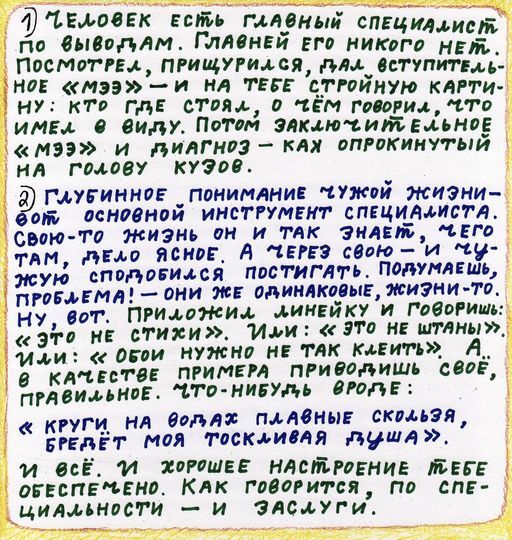 1) Человек есть главный специалист
по выводам. Главней его никого нет.
Посмотрел, прищурился, дал вступитель-
ное «мээ» — и на тебе стройную карти-
ну: кто где стоял, о чём говорил, что
имел в виду. Потом заключительное
«мээ» и диагноз — как опрокинутый
на голову кузов.
2) Глубинное понимание чужой жизни —
вот основной инструмент специалиста.
Свою-то жизнь он и так знает, чего
там, дело ясное. А через свою — и чу-
жую сподобился постигать. Подумаешь,
проблема! — они же одинаковые, жизни-то.
Ну, вот. Приложил линейку и говоришь:
«это не стихи». Или: «это не штаны».
Или: «обои нужно не так клеить». А
в качестве примера приводишь своё,
правильное. Что-нибудь вроде:
«круги на водах плавные скользя,
бредёт моя тоскливая душа».
И всё. И хорошее настроение тебе
обеспечено. Как говорится, по спе-
циальности — и заслуги.